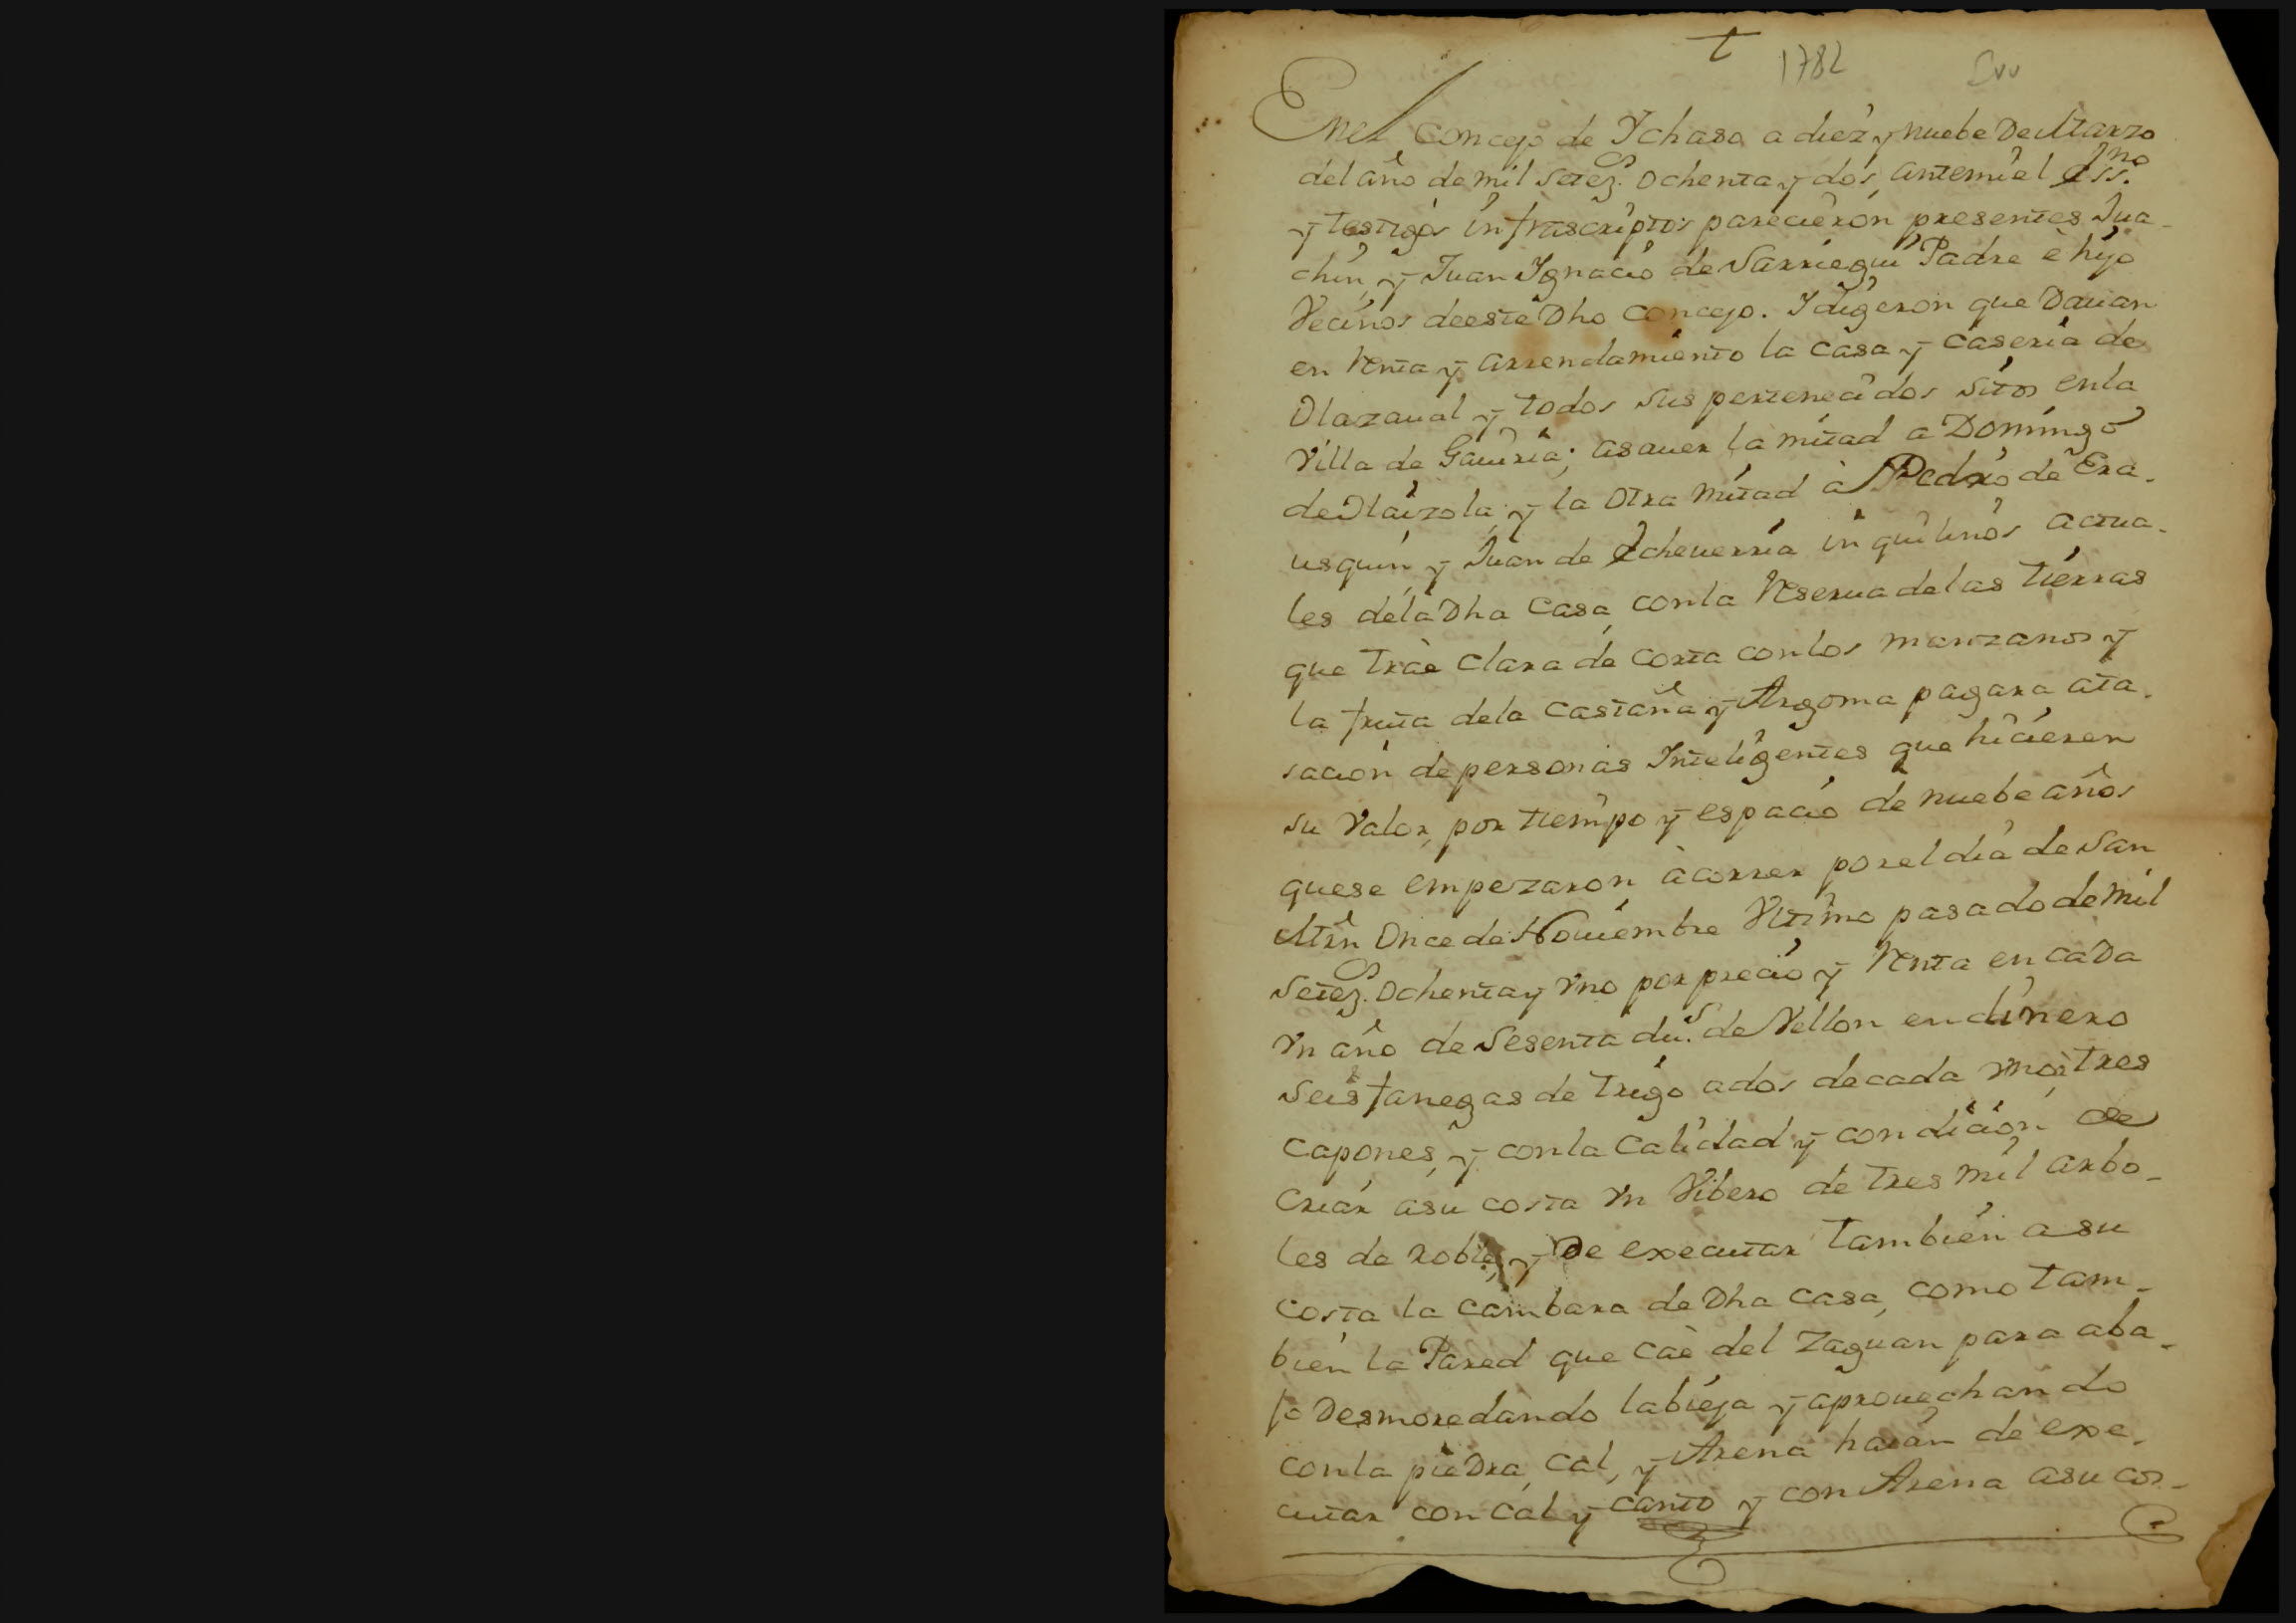 t
1782
En el Concejo de Ychaso a diez y nuebe De Marzo
del año de mil Setez.s Ochenta y dos, antemi el Ess.no
y testigos infrascriptos parecieron presentes Jua-
chin, y Juan Ygnacio de Sarriegui Padre è hijo
Vecinos deeste Dho Concejo. Y digeron que Dauan
en Renta y arrendamiento la casa y caseria de
Olazaual y todos sus pertenecidos sitos enla
Villa de Gauiria; asauer la mitad a Domingo
de Olaizola, y la Otra mitad à Pedro de Era-
usquin, y Juan de Echeuerria inquilinos actua-
les dela Dha Casa, conla Reserua delas tierras
que tràe Clara de Corta conlos manzanos y
la fruta dela Castaña y Argoma pagara ata-
sacion de personas Inteligentes que hicieren
su Valor, por tiempo y espacio de nuebe años
quese empezaron à correr porel dia de San
Mrñ Once de Nouiembre Vltimo pasado de mil
Setez.s Ochenta y Vno por precio y Renta en caDa
Vn año de Sesenta du.s de Vellon en dinero
Seis fanegas de trigo ados decada Vno, è tres
Capones, y conla Calidad y condicion de
Criar asu costa Vn Vibero de tres mil arbo-
les de roble, y De executar tambien a su
costa la cambara de Dha casa, como tam-
bien la Pared que Càe del Zaguan para aba-
jo Desmoredando labieja y aprouechando
conla pieDra, Cal, y Arena haian de exe-
cutar con Cal y canto y con Arena asu cos-